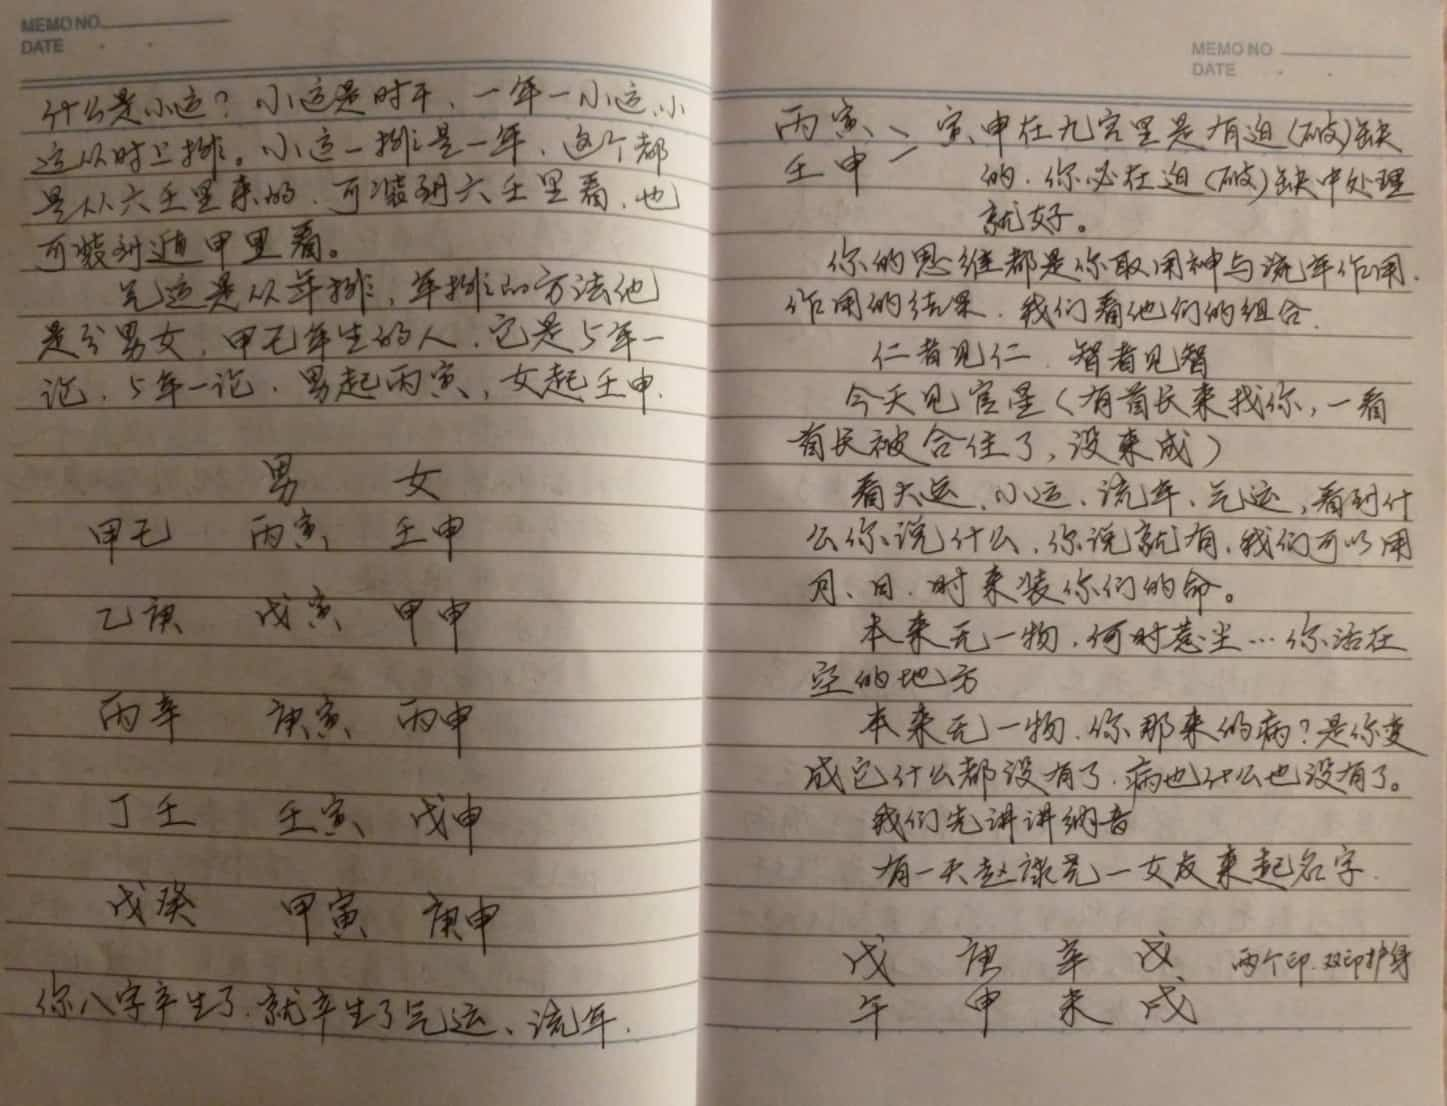 MEMO NO
DATE
什么是小运？小运是时干、一年一小运、小
运从时上排。小运一排是一年，这个都
是从六壬里来的，可装到六壬里看，也
可装到遁甲里看。
气运是从年排，年排的方法他
是分男女，甲己年生的人，它是5年一
论，5年一论，男起丙寅，女起壬申.
男 女
甲己 丙寅 壬申
乙庚 戊寅 甲申
丙辛 庚寅 丙申
丁壬 壬寅 戊申
戊癸 甲寅 庚申
你八字产生了，就产生了气运、流年.
MEMO NO
DATE
丙寅、 寅申在九宫里是有迫(破)缺
壬申 的，你必在迫(破)缺中处理
就好。
你的思维都是你取用神与流年作用，
作用的结果，我们看他们的组合.
仁者见仁 智者见智
今天见官星(有首长来找你，一看
首长被合住了，没来成)
看大运、小运、流年、气运，看到什
么你说什么，你说就有，我们可以用
月、日、时来装你们的命。
本来无一物，何时惹尘…你活在
空的地方
本来无一物，你那来的病？是你变
成它什么都没有了，病也什么也没有了。
我们先讲讲纳音
有一天赵 一女友来起名字.
戊 庚 辛 戊 两个印，双印护身
午 申 未 戌